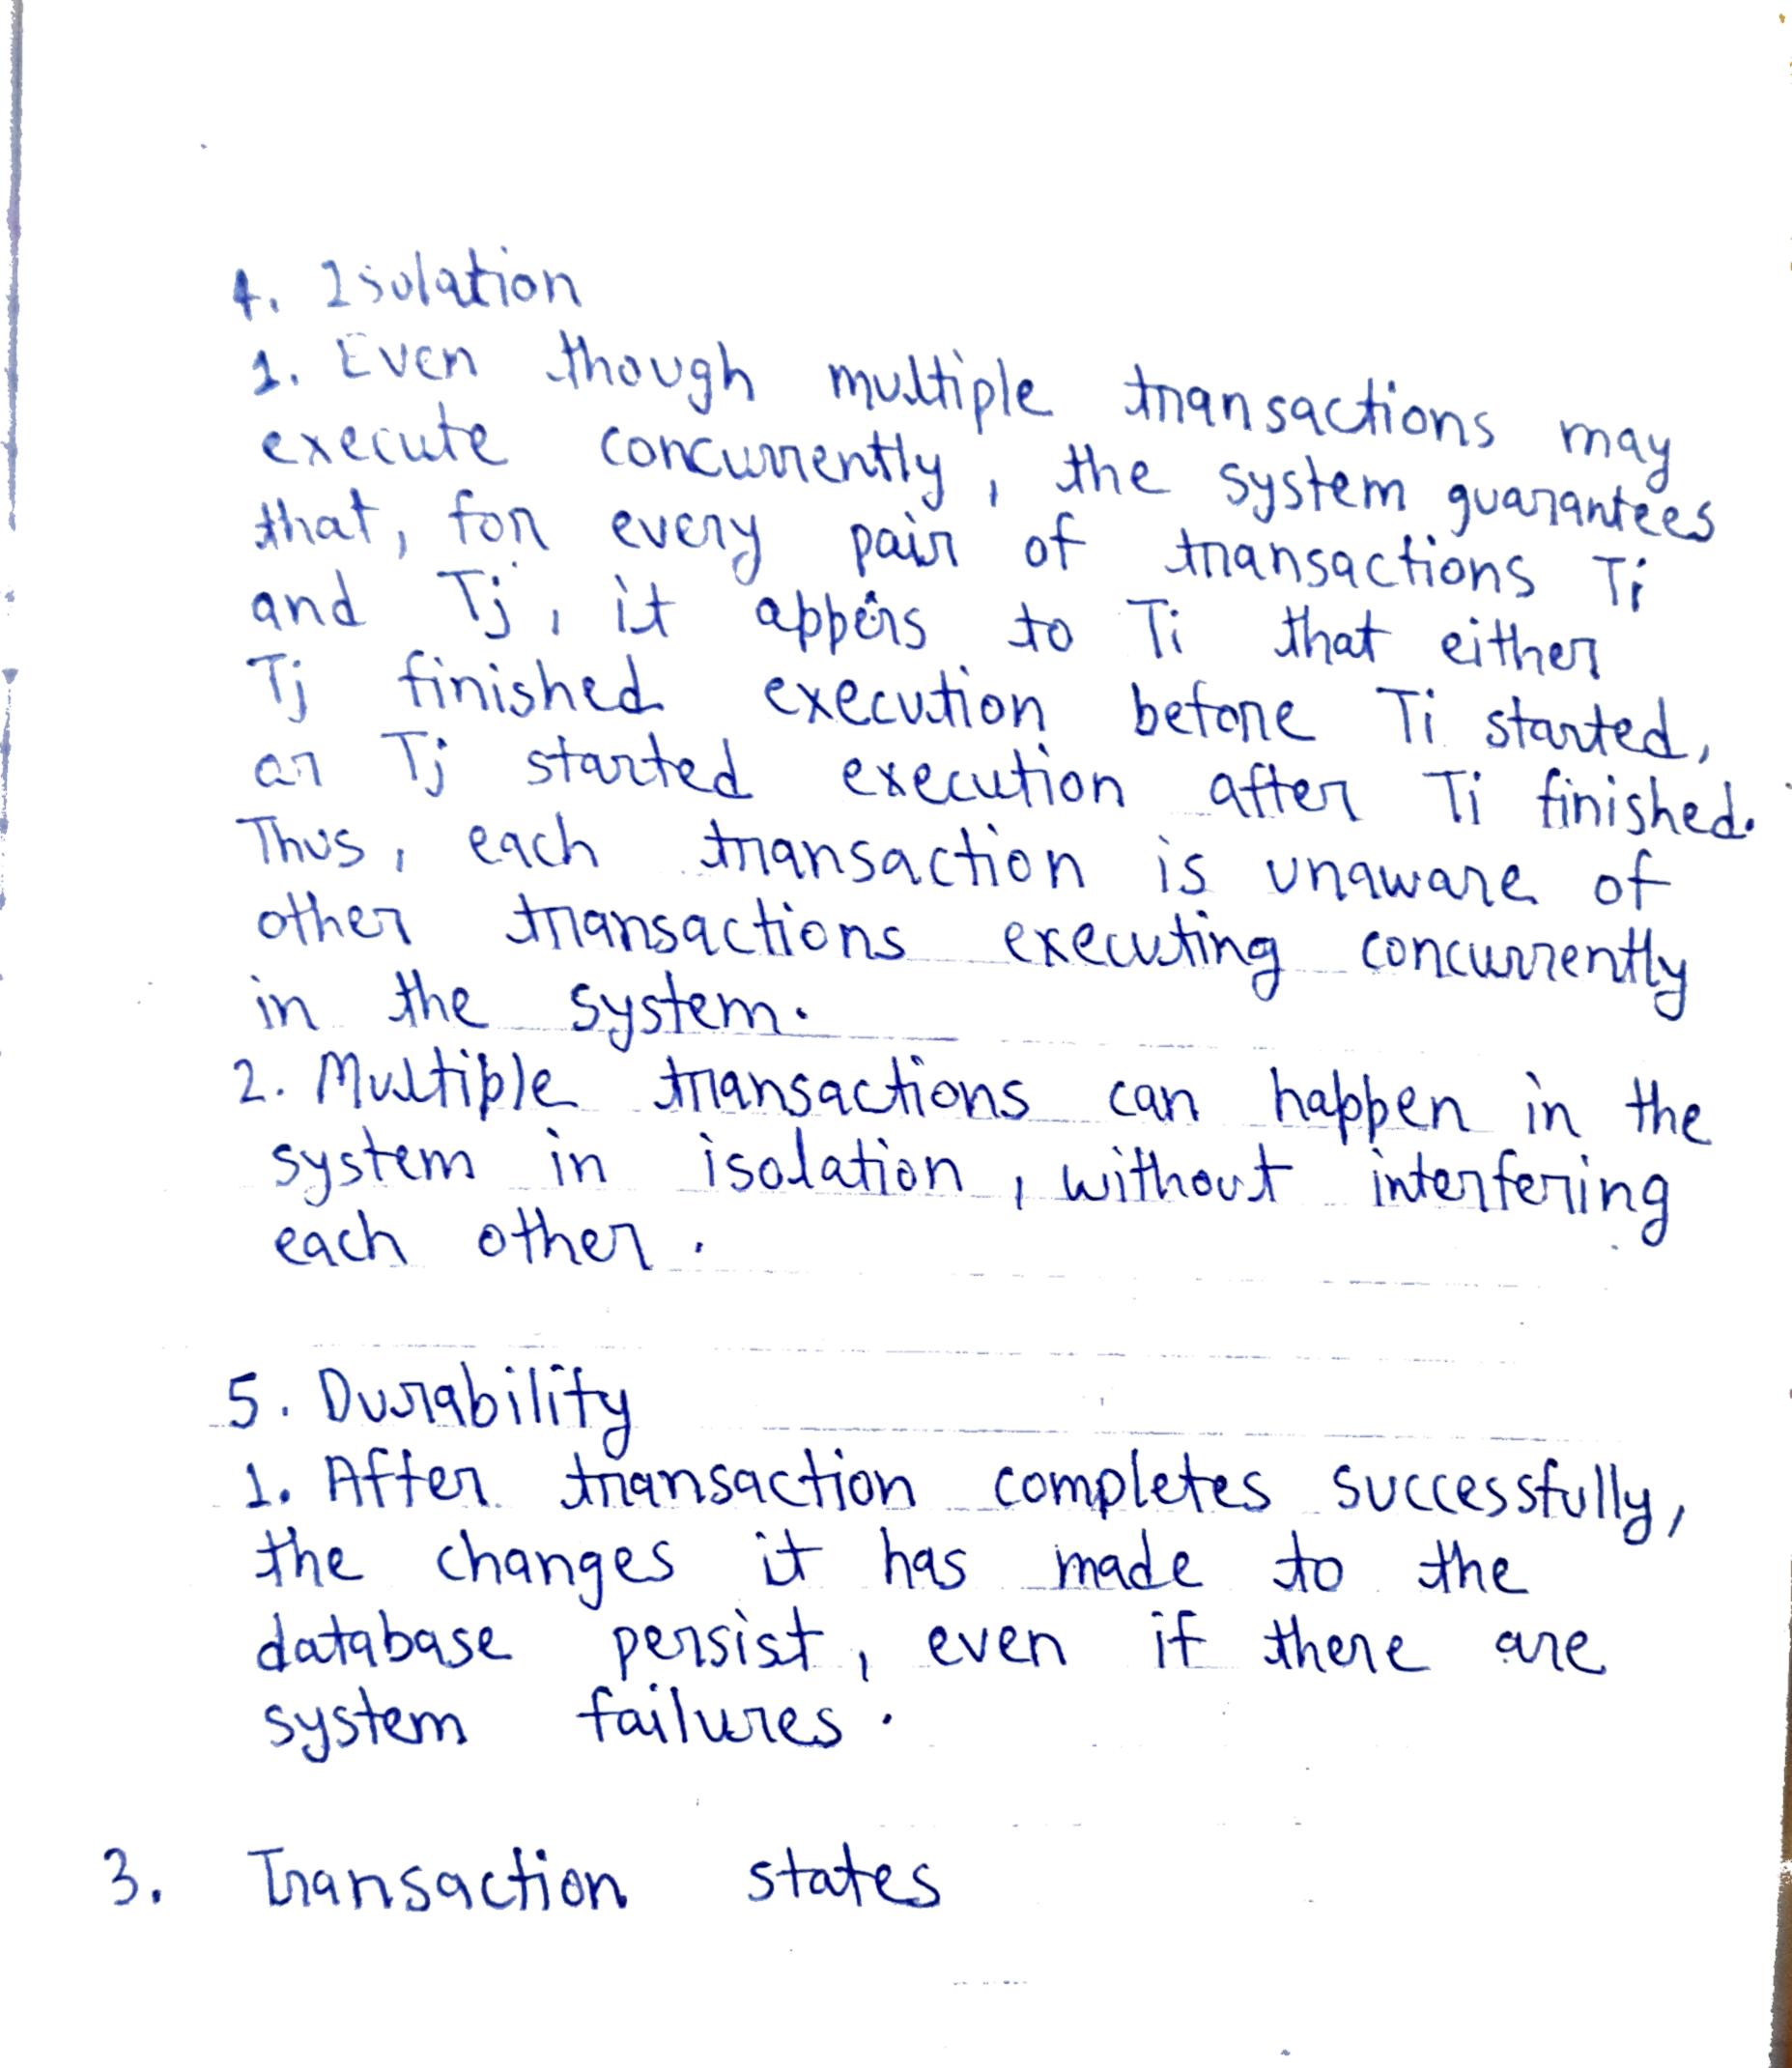 4. Isolation
1. Even though multiple transactions may
execute concurrently, the system guarantees
that, for every pair of transactions Ti
and Tj, it appers to Ti that either
Tj finished execution before Ti started,
or Tj started execution after Ti finished.
Thus, each transaction is unaware of
other transactions executing concurrently
in the system.
2. Multiple transactions can happen in the
system in isolation, without interfering
each other.
5. Durability
1. After transaction completes successfully,
the changes it has made to the
database persist, even if there are
system failures.
3. Transaction states